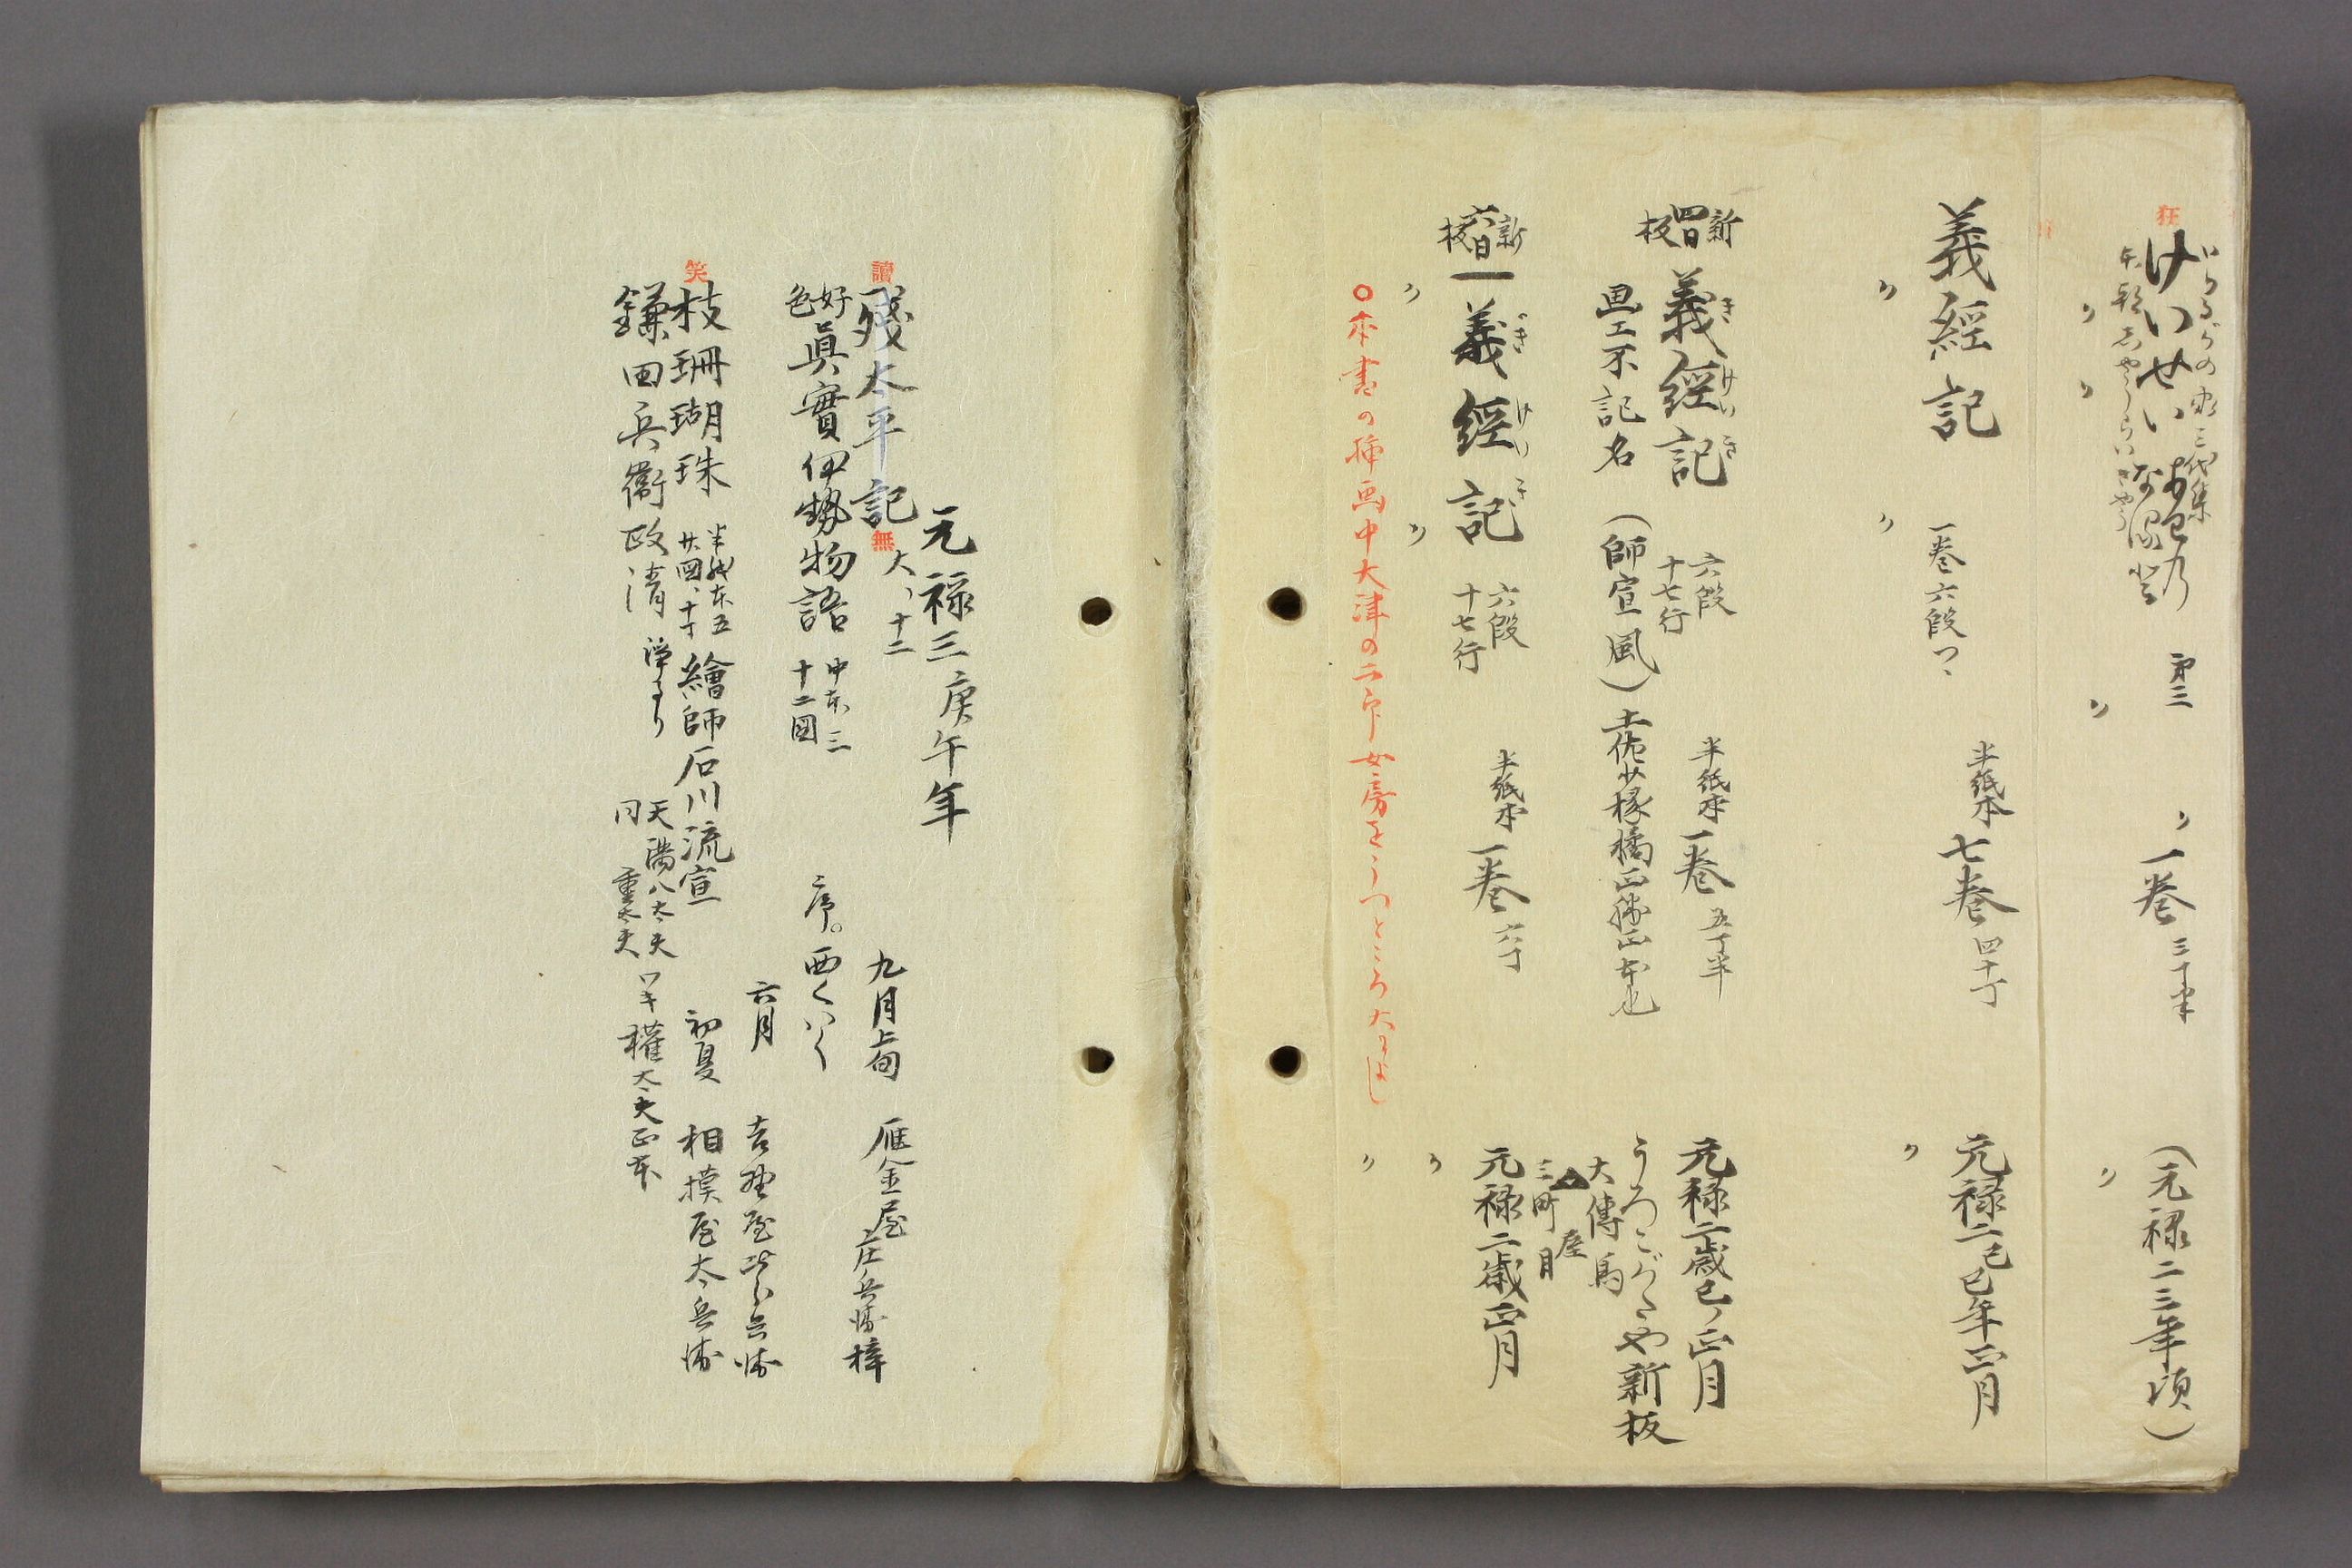 狂
けいせい
第三
一巻 三丁半
(元禄二三年頃)
義經記
一巻六段つゝ
半紙本 七巻 四十丁
元禄二己巳年正月
新板 四日
義經記
きけいき
六段
十七行
半紙本 一巻 五丁半
元禄二歳巳ノ正月
画工不記名 (師宣風)
土佐少掾橘正勝正本也
うろこがたや新板
大傳馬
三町目
屋
新板 六日
一義經記
ぎけいき
六段
十七行
半紙本 一巻 六丁
元禄二歳正月
○本書の挿画中大津の二郎女房をうつところ
元禄三庚午年
讀
残太平記
無
大、十二
九月上旬 雁金屋庄兵衛梓
好色
眞實伊勢物語
中本、三
十二圖
序。西くハく
六月
笑
枝珊瑚珠
半紙本五
廿四、十丁
繪師石川流宣
初夏 相摸屋太兵衛
鎌田兵衞政清 浄るり
天満八太夫
同 重太夫
ワキ 權太夫正本